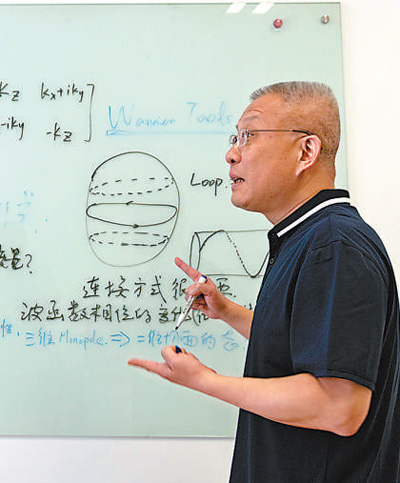 kz kx+iky
-iky -kz
Wannier Tools
Loop.
量?
连接方式很 要
波函数相位的变化
三维 Monopoles. => 二维切面的态